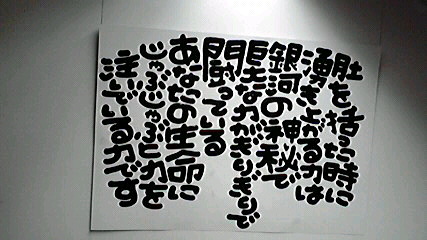 肚を括った時に
湧き上がる力は
銀河の神秘で
巨大な力がぎりぎりで
闘っている
あなたの生命に
じゃぶじゃぶと力を
注いでいる力です